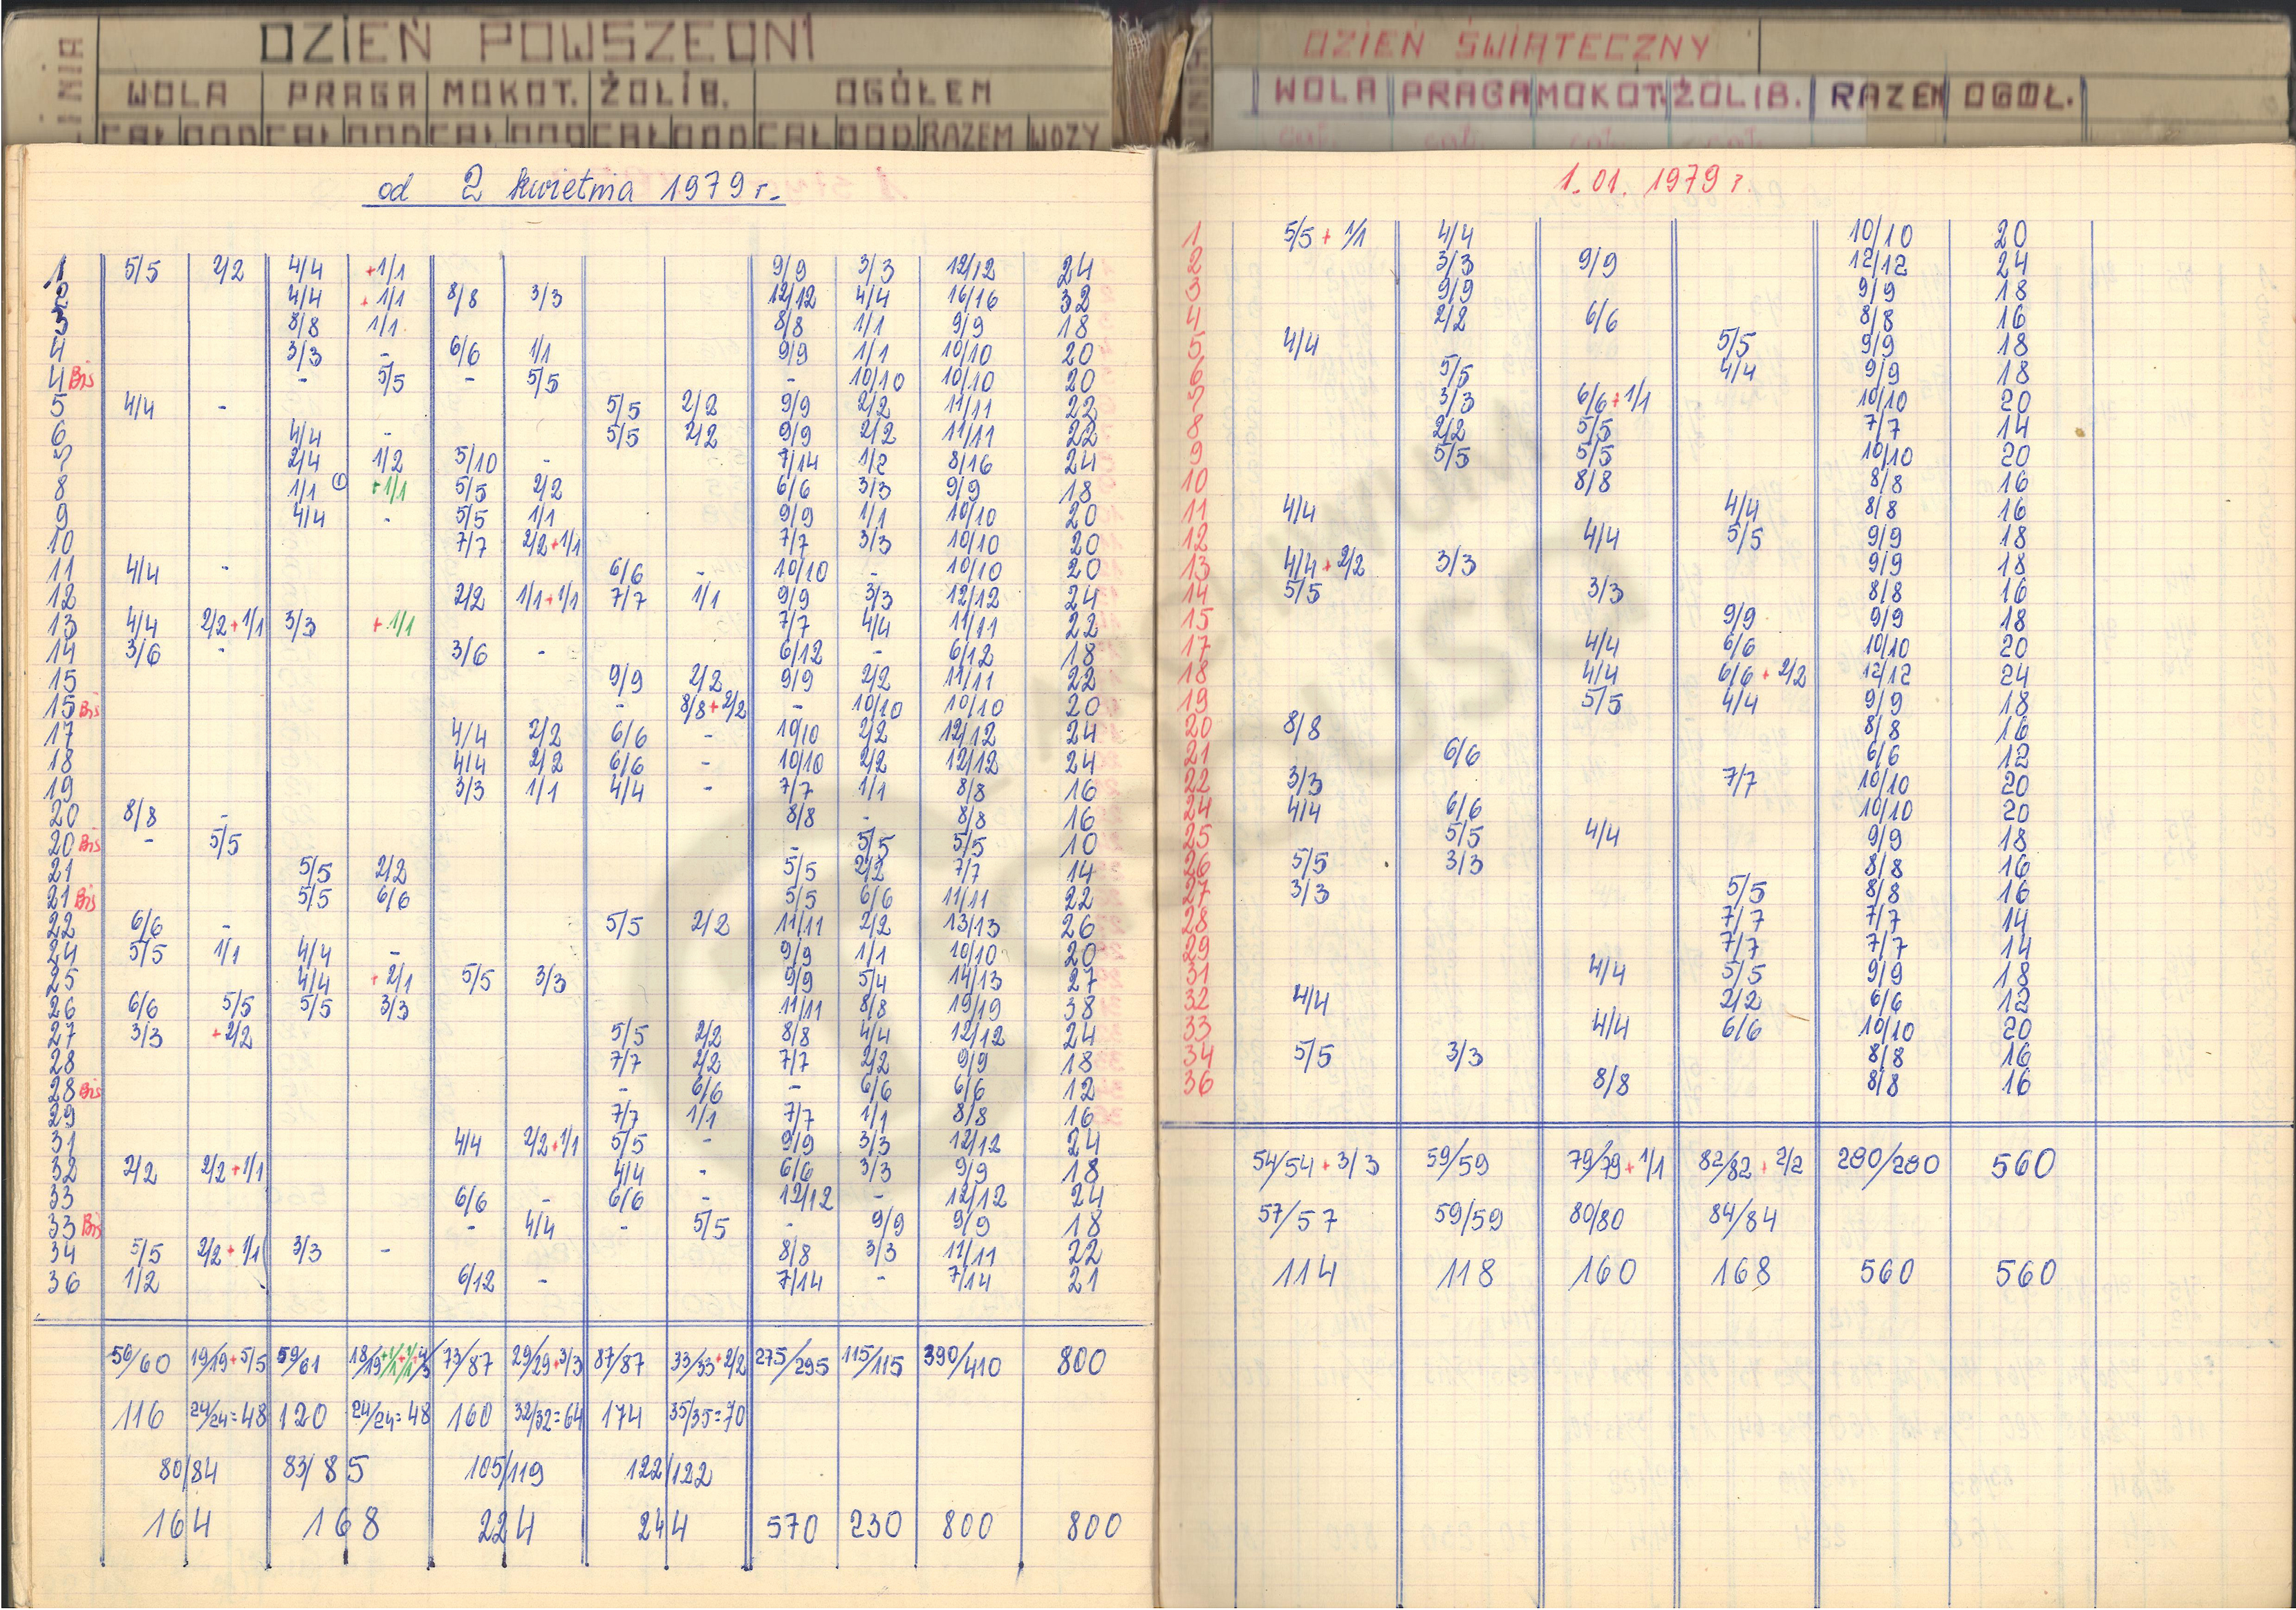 LINIA DZIEŃ POWSZEDNI
WOLA PRAGA MOKOT. ŻOLIB. OGÓŁEM
CAŁ DOD CAŁ DOD CAŁ DOD CAŁ DOD CAŁ DOD RAZEM WOZY
od 2 kwietnia 1979 r.
1 5/5 2/2 4/4 +1/1 9/9 3/3 12/12 24
2 4/4 +1/1 8/8 3/3 12/12 4/4 16/16 32
3 8/8 1/1 8/8 1/1 9/9 18
4 3/3 - 6/6 1/1 9/9 1/1 10/10 20
4 Bis - 5/5 - 5/5 - 10/10 10/10 20
5 4/4 - 5/5 2/2 9/9 2/2 11/11 22
6 4/4 - 5/5 2/2 9/9 2/2 11/11 22
7 2/4 1/2 5/10 - 7/14 1/2 8/16 24
8 1/1 +1/1 5/5 2/2 6/6 3/3 9/9 18
9 4/4 - 5/5 1/1 9/9 1/1 10/10 20
10 7/7 2/2+1/1 7/7 3/3 10/10 20
11 4/4 - 6/6 - 10/10 - 10/10 20
12 2/2 1/1+1/1 7/7 1/1 9/9 3/3 12/12 24
13 4/4 2/2+1/1 3/3 +1/1 7/7 4/4 11/11 22
14 3/6 - 3/6 - 6/12 - 6/12 18
15 9/9 2/2 9/9 2/2 11/11 22
15 Bis - 8/8+2/2 - 10/10 10/10 20
17 4/4 2/2 6/6 - 10/10 2/2 12/12 24
18 4/4 2/2 6/6 - 10/10 2/2 12/12 24
19 3/3 1/1 4/4 - 7/7 1/1 8/8 16
20 8/8 - 8/8 - 8/8 16
20 Bis - 5/5 - 5/5 5/5 10
21 5/5 2/2 5/5 2/2 7/7 14
21 Bis 5/5 6/6 5/5 6/6 11/11 22
22 6/6 - 5/5 2/2 11/11 2/2 13/13 26
24 5/5 1/1 4/4 - 9/9 1/1 10/10 20
25 4/4 +2/1 5/5 3/3 9/9 5/4 14/13 27
26 6/6 5/5 5/5 3/3 11/11 8/8 19/19 38
27 3/3 +2/2 5/5 2/2 8/8 4/4 12/12 24
28 7/7 2/2 7/7 2/2 9/9 18
28 Bis - 6/6 - 6/6 6/6 12
29 7/7 1/1 7/7 1/1 8/8 16
31 4/4 2/2+1/1 5/5 - 9/9 3/3 12/12 24
32 2/2 2/2+1/1 4/4 - 6/6 3/3 9/9 18
33 6/6 - 6/6 - 12/12 - 12/12 24
33 Bis - 4/4 - 5/5 - 9/9 9/9 18
34 5/5 2/2+1/1 3/3 - 8/8 3/3 11/11 22
36 1/2 6/12 - 7/14 - 7/14 21
56/60 19/19+5/5 59/61 73/87 29/29+3/3 87/87 33/33+2/2 275/295 115/115 390/410 800
116 24/24=48 120 24/24=48 160 32/32=64 174 35/35=70
80/84 83/85 105/119 122/122
164 168 224 244 570 230 800 800
LINIA DZIEŃ ŚWIĄTECZNY
WOLA PRAGA MOKOT. ŻOLIB. RAZEM OGÓŁ.
1.01.1979 r.
1 5/5 + 1/1 4/4 10/10 20
2 3/3 9/9 12/12 24
3 9/9 9/9 18
4 2/2 6/6 8/8 16
5 4/4 5/5 9/9 18
6 5/5 4/4 9/9 18
7 3/3 6/6+1/1 10/10 20
8 2/2 5/5 7/7 14
9 5/5 5/5 10/10 20
10 8/8 8/8 16
11 4/4 4/4 8/8 16
12 4/4 5/5 9/9 18
13 4/4+2/2 3/3 9/9 18
14 5/5 3/3 8/8 16
15 9/9 9/9 18
17 4/4 6/6 10/10 20
18 4/4 6/6 + 2/2 12/12 24
19 5/5 4/4 9/9 18
20 8/8 8/8 16
21 6/6 6/6 12
22 3/3 7/7 10/10 20
24 4/4 6/6 10/10 20
25 5/5 4/4 9/9 18
26 5/5 3/3 8/8 16
27 3/3 5/5 8/8 16
28 7/7 7/7 14
29 7/7 7/7 14
31 4/4 5/5 9/9 18
32 4/4 2/2 6/6 12
33 4/4 6/6 10/10 20
34 5/5 3/3 8/8 16
36 8/8 8/8 16
54/54+3/3 59/59 79/79+1/1 82/82+2/2 280/280 560
57/57 59/59 80/80 84/84
114 118 160 168 560 560